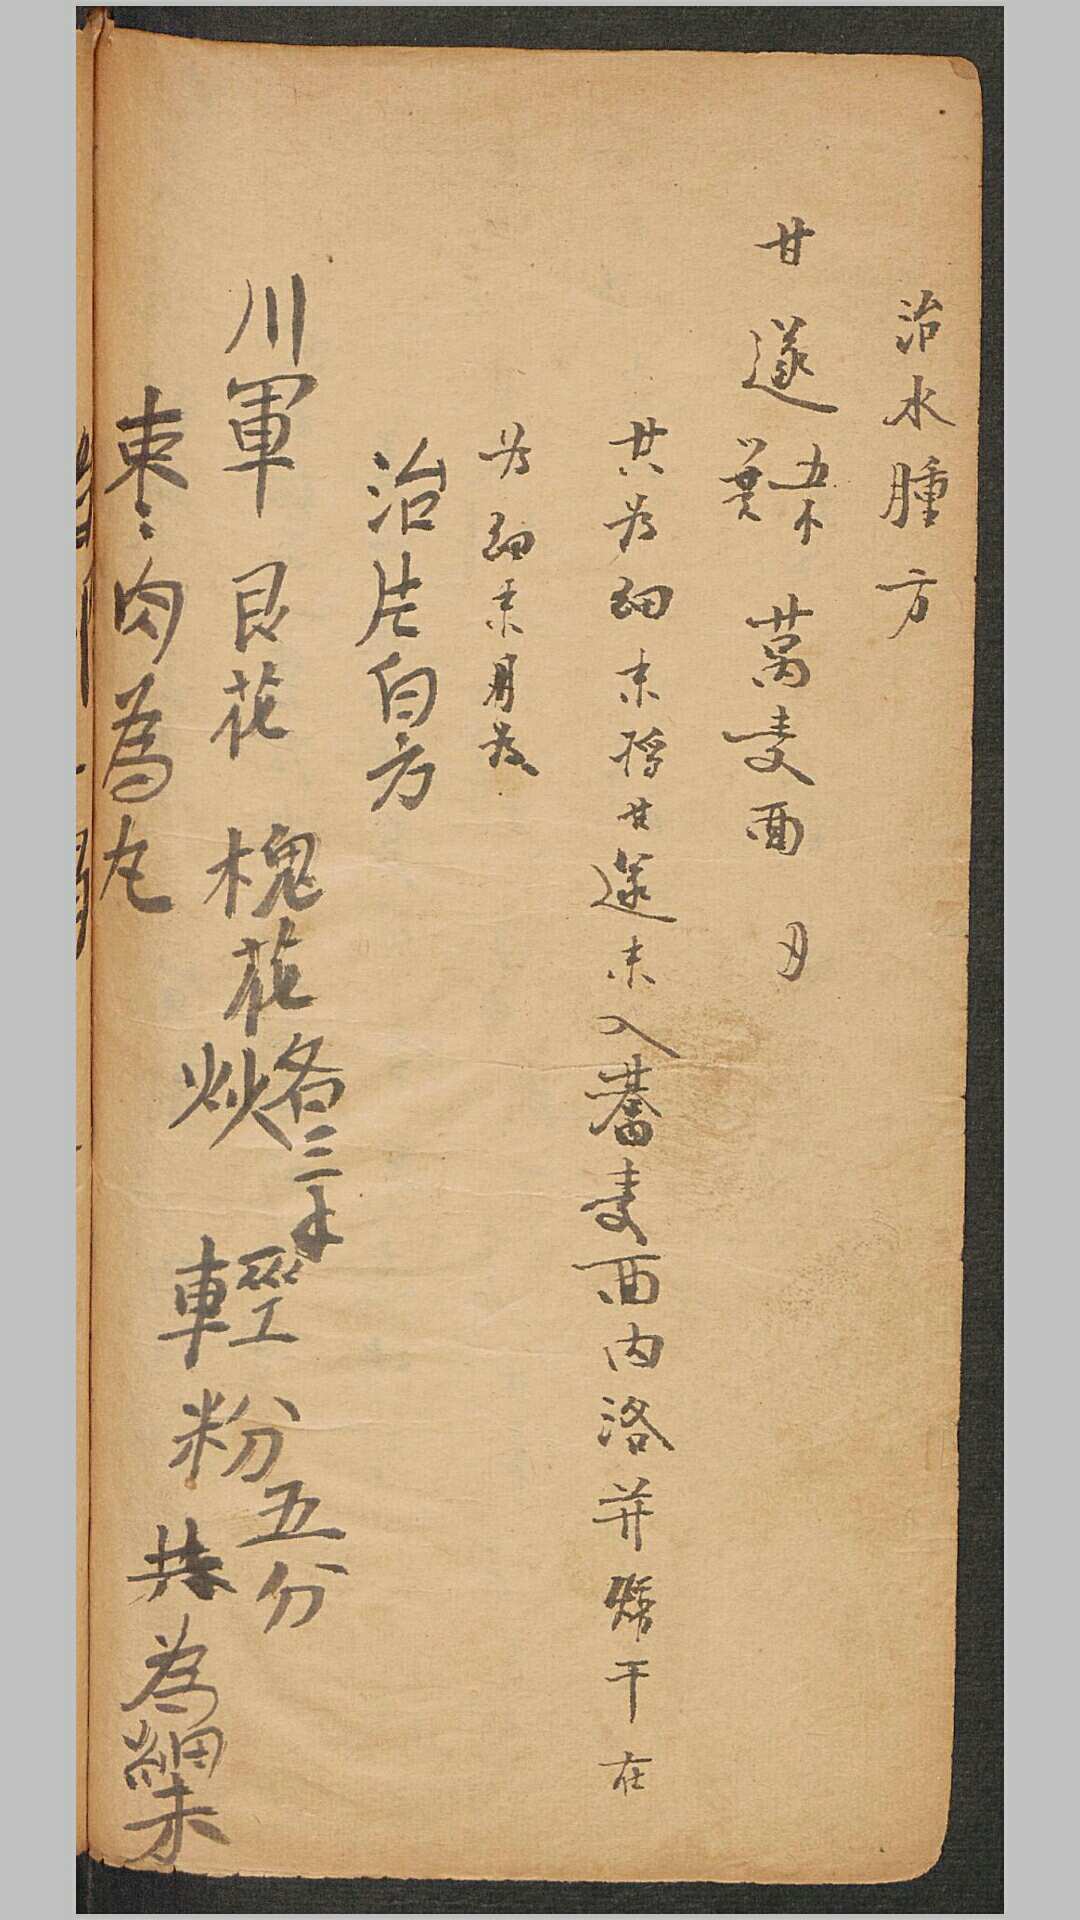 治水腫方
甘遂五 萬麦面
共为細末 将甘遂末入蕎麦面内洛并 干在
为細末用
治片白方
川軍 艮花 槐花各三 炒 輕粉五分 共為細末
枣肉為丸